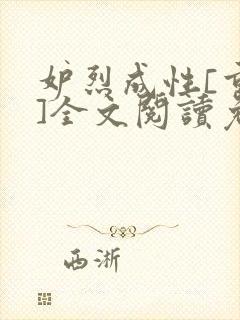 妒烈成性[重
]全文閱讀免
西淅